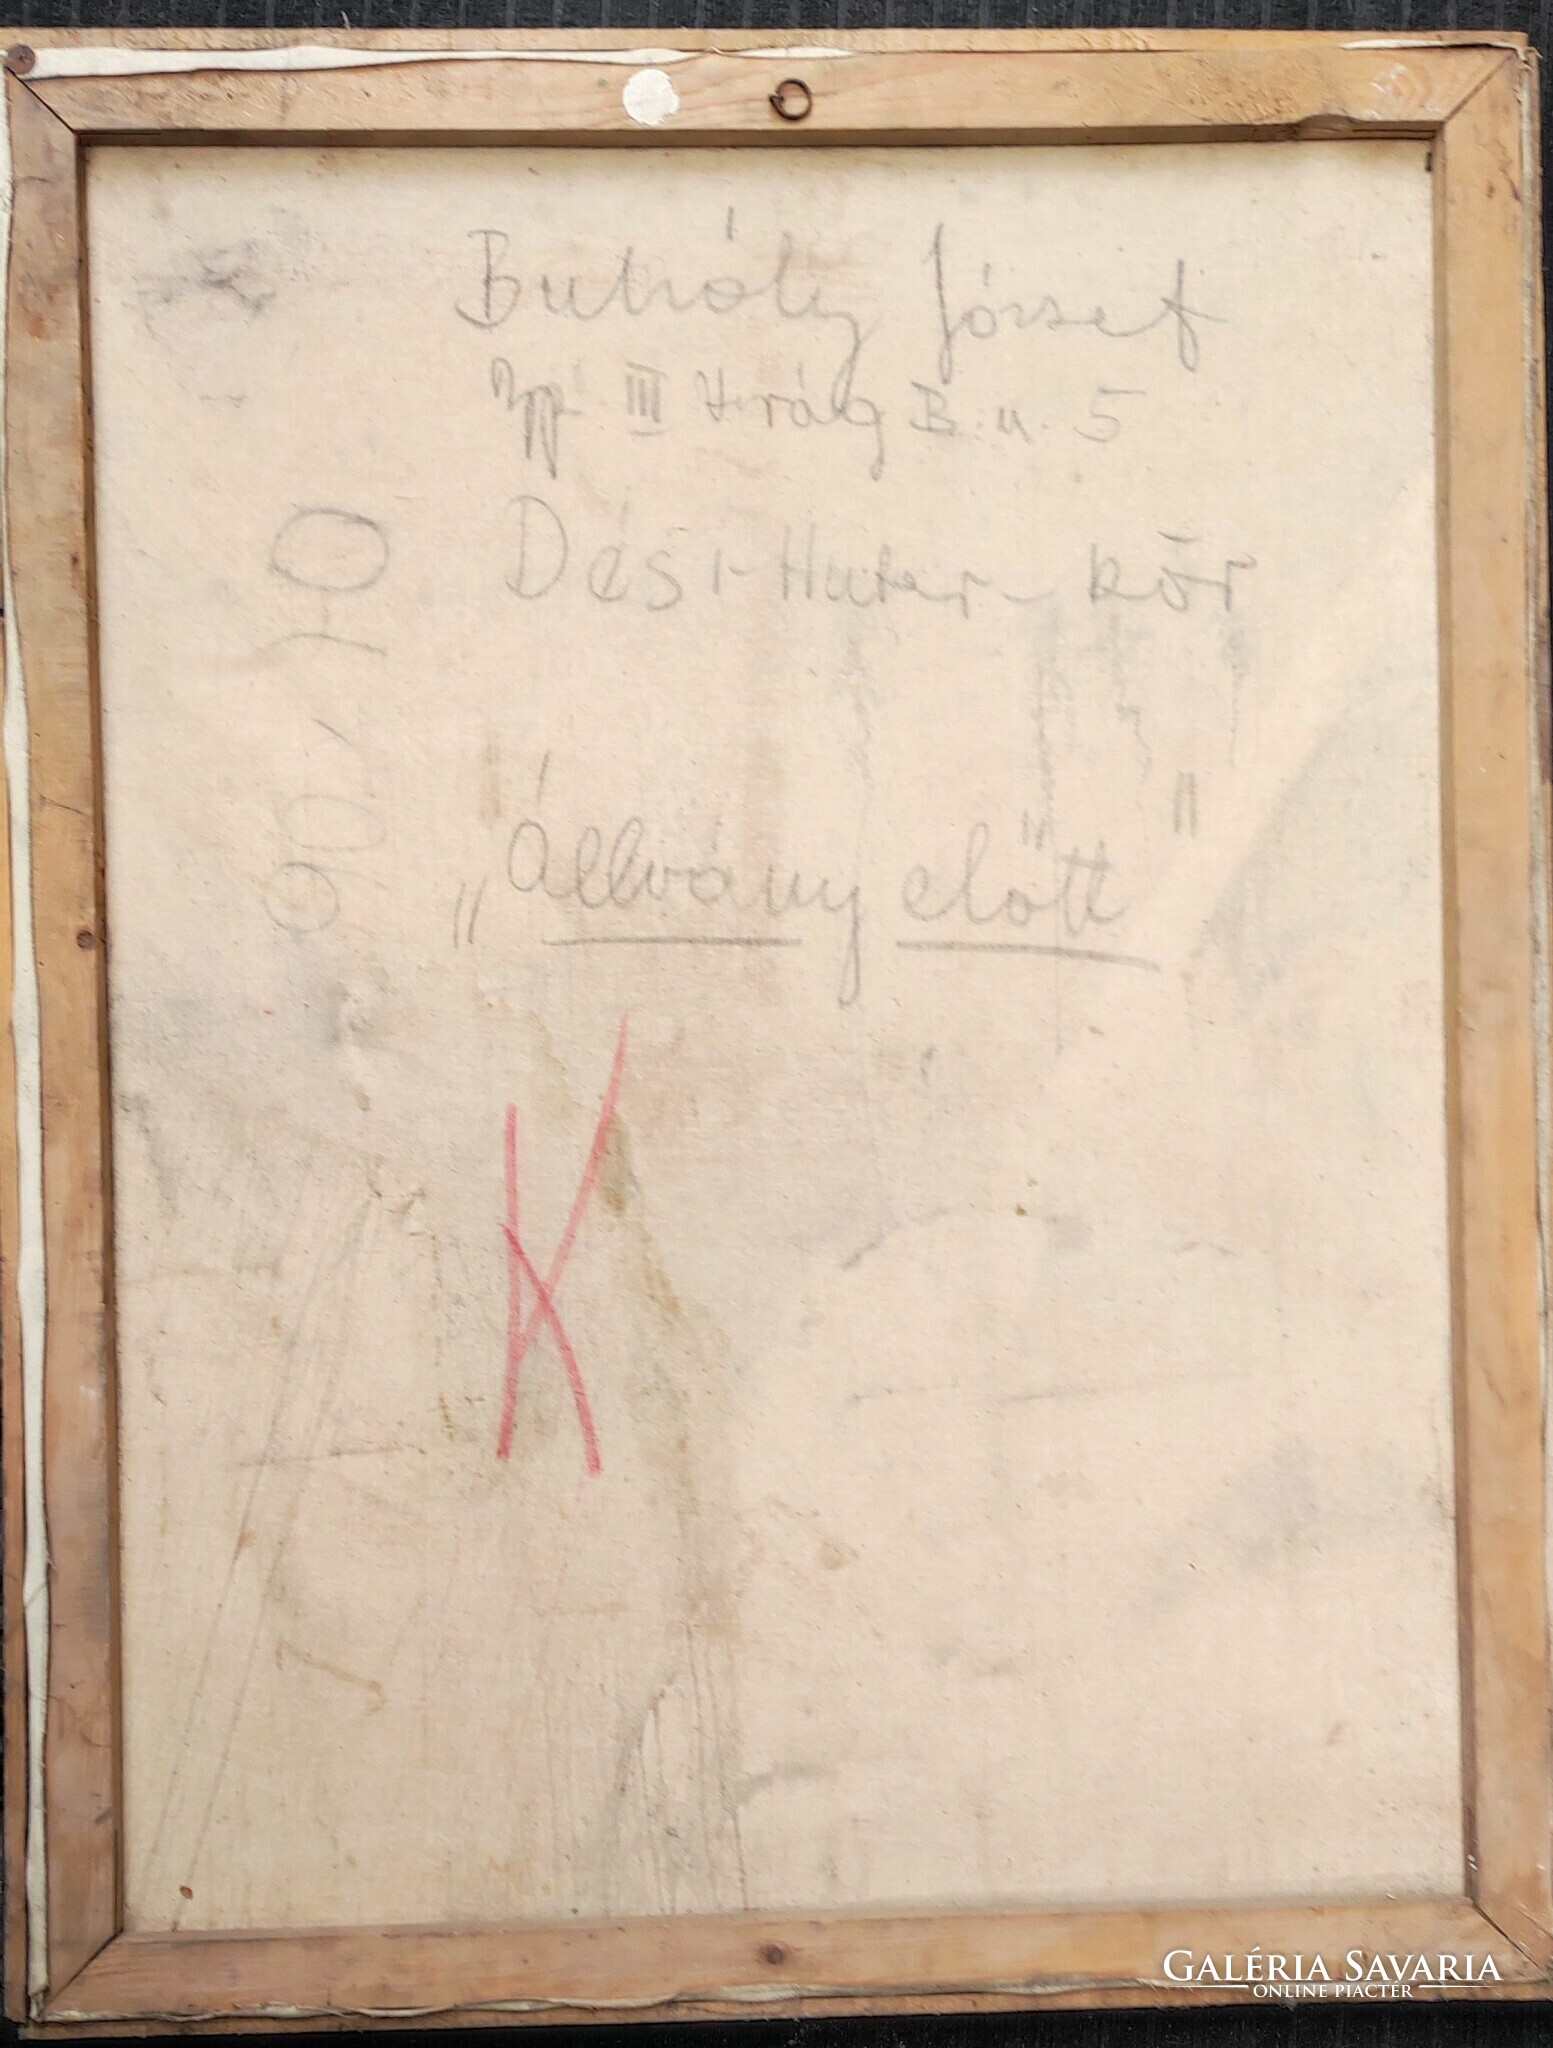 Buhály József
Bp. III Virág B. u. 5
Dési-Huber-kör
„Állvány előtt"
K
GALÉRIA SAVARIA
ONLINE PIACTÉR